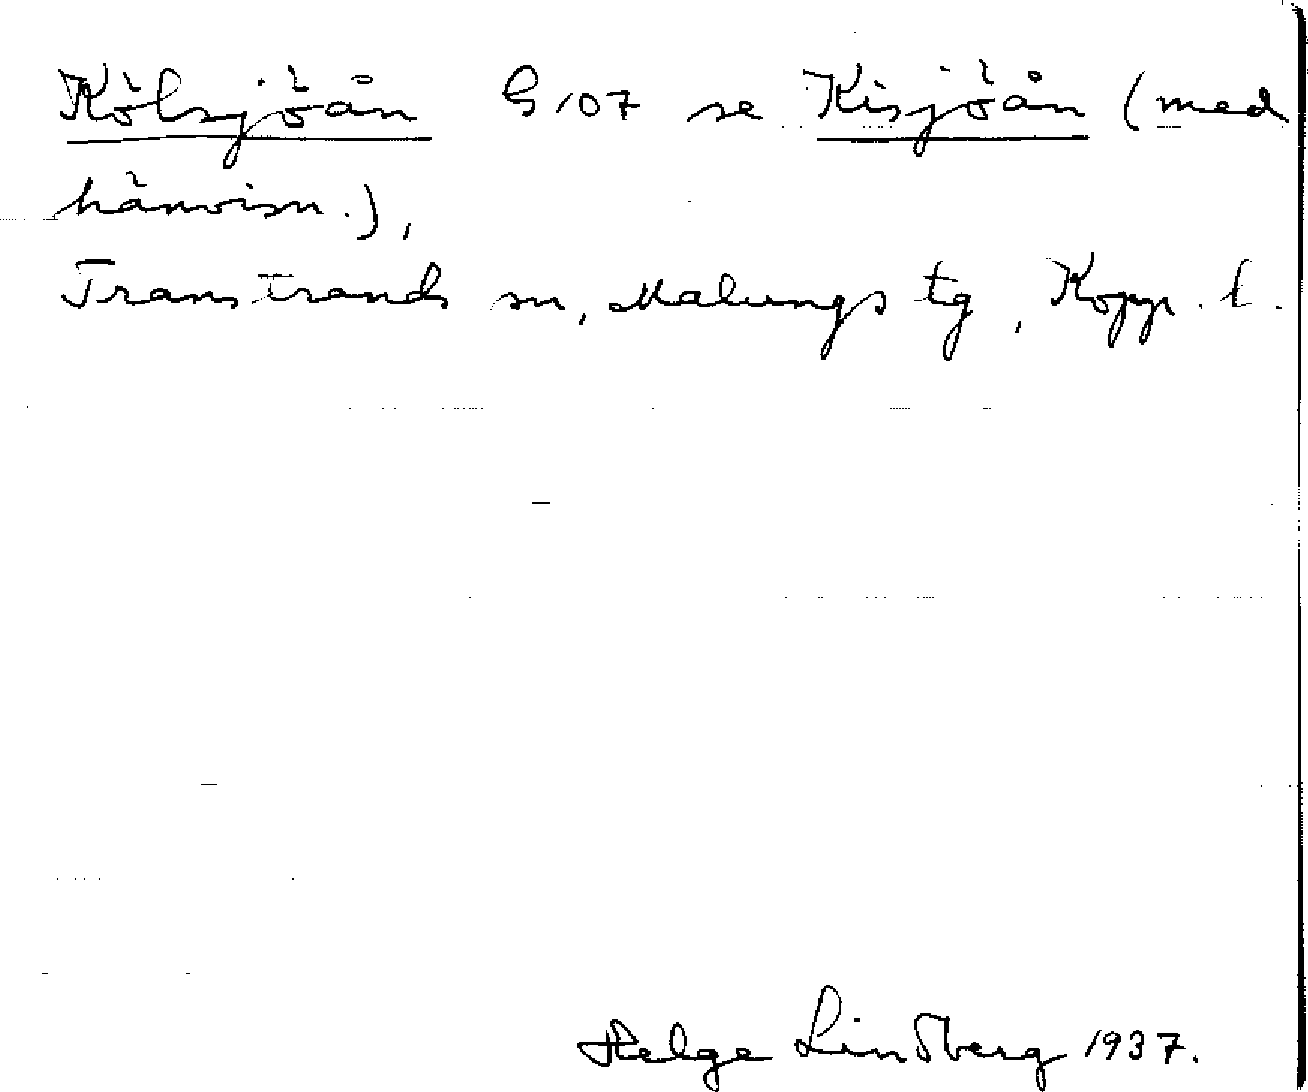 Kölsjöån G107 se Kisjöån (med
hänvisn.),
Transtrands sn, Malungs tg, Kopp. l.
Helge Lindberg 1937.